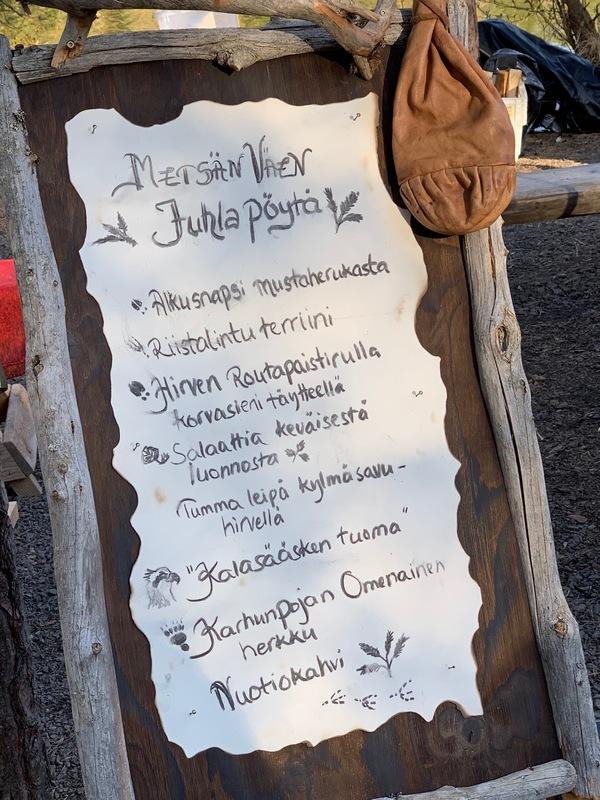 Metsän Väen
Juhla pöytä
Alkusnapsi mustaherukasta
Riistalintu terriini
Hirven Routapaistirulla
korvasieni täytteellä
Salaattia keväisestä
luonnosta
Tumma leipä kylmäsavu-
hirvellä
"Kalasääsken tuoma"
Karhunpojan Omenainen
herkku
Nuotiokahvi